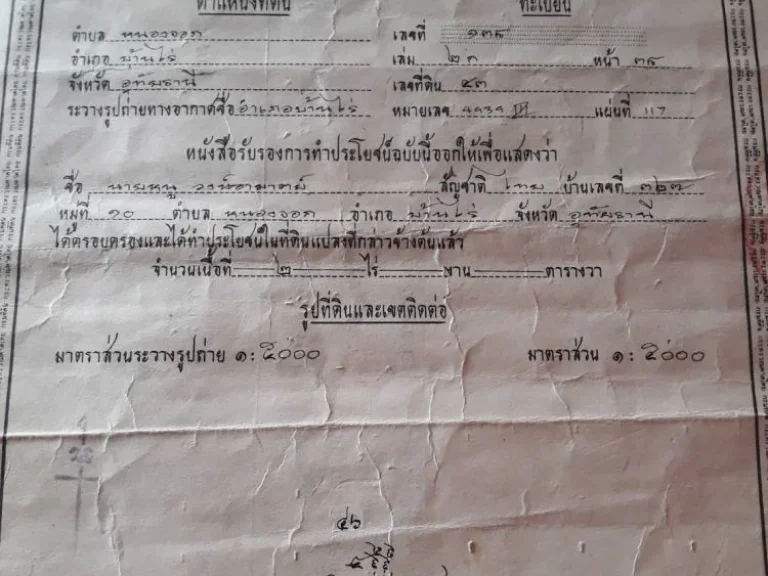 ตำแหน่งที่ดิน ทะเบียน
ตำบล หนองจอก เลขที่ ๑๓๕
อำเภอ บ้านไร่ เล่ม ๒ก หน้า ๓๕
จังหวัด อุทัยธานี เลขที่ดิน ๔๓
ระวางรูปถ่ายทางอากาศชื่อ อำเภอบ้านไร่ หมายเลข 4939 IV แผ่นที่ 117
หนังสือรับรองการทำประโยชน์ฉบับนี้ออกให้เพื่อแสดงว่า
ชื่อ นายหนู สัญชาติ ไทย บ้านเลขที่ ๓๒๗
หมู่ที่ ๑๐ ตำบล หนองจอก อำเภอ บ้านไร่ จังหวัด อุทัยธานี
ได้ครอบครองและได้ทำประโยชน์ในที่ดินแปลงที่กล่าวข้างต้นแล้ว
จำนวนเนื้อที่ ๒ ไร่ — งาน — ตารางวา
รูปที่ดินและเขตติดต่อ
มาตราส่วนระวางรูปถ่าย ๑ : ๕๐๐๐ มาตราส่วน ๑ : ๕๐๐๐
๔๖